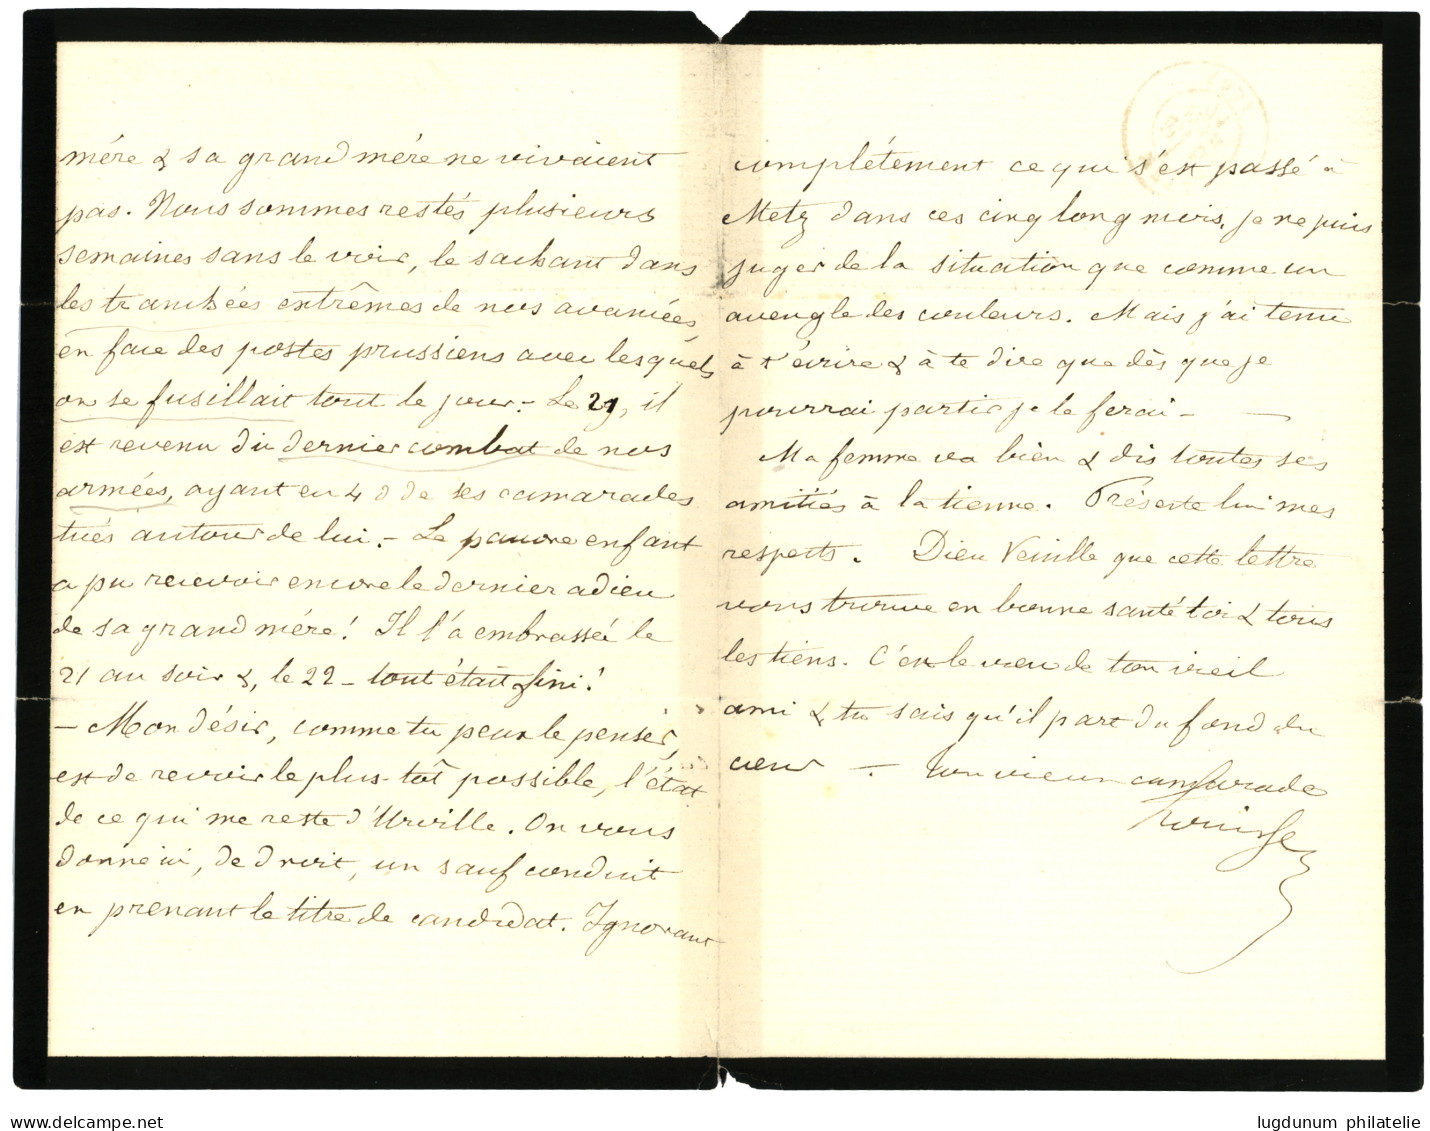 mère & sa grand mère ne vivaient
pas. Nous sommes restés plusieurs
semaines sans le voir, le sachant dans
les tranchées extrêmes de nos avancées,
en face des postes prussiens avec lesquels
on se fusillait tout le jour. Le 21, il
est revenu du dernier combat de nos
armées, ayant eu 4 de ses camarades
tués autour de lui. - Le pauvre enfant
a pu recevoir encore le dernier adieu
de sa grand mère! Il l'a embrassée le
21 au soir &, le 22 - tout était fini!
- Mon désir, comme tu peux le penser,
est de revoir le plus-tôt possible, l'état
de ce qui me reste d'Urville. On vous
donne ici, de droit, un sauf conduit
en prenant le titre de candidat. Ignorant
complétement ce qui s'est passé à
Metz dans ces cinq long mois, je ne puis
juger de la situation que comme un
aveugle des couleurs. Mais j'ai tenu
à t'écrire & à te dire que dès que je
pourrai partir je le ferai -
Ma femme va bien & dis toutes ses
amitiés à la tienne. Présente lui mes
respects. Dieu Veuille que cette lettre
vous trouve en bonne santé toi & tous
les tiens. C'est le vœu de ton vieil
ami & tu sais qu'il part du fond du
cœur - Ton vieux camarade
delcampe.net
lugdunum philatelie